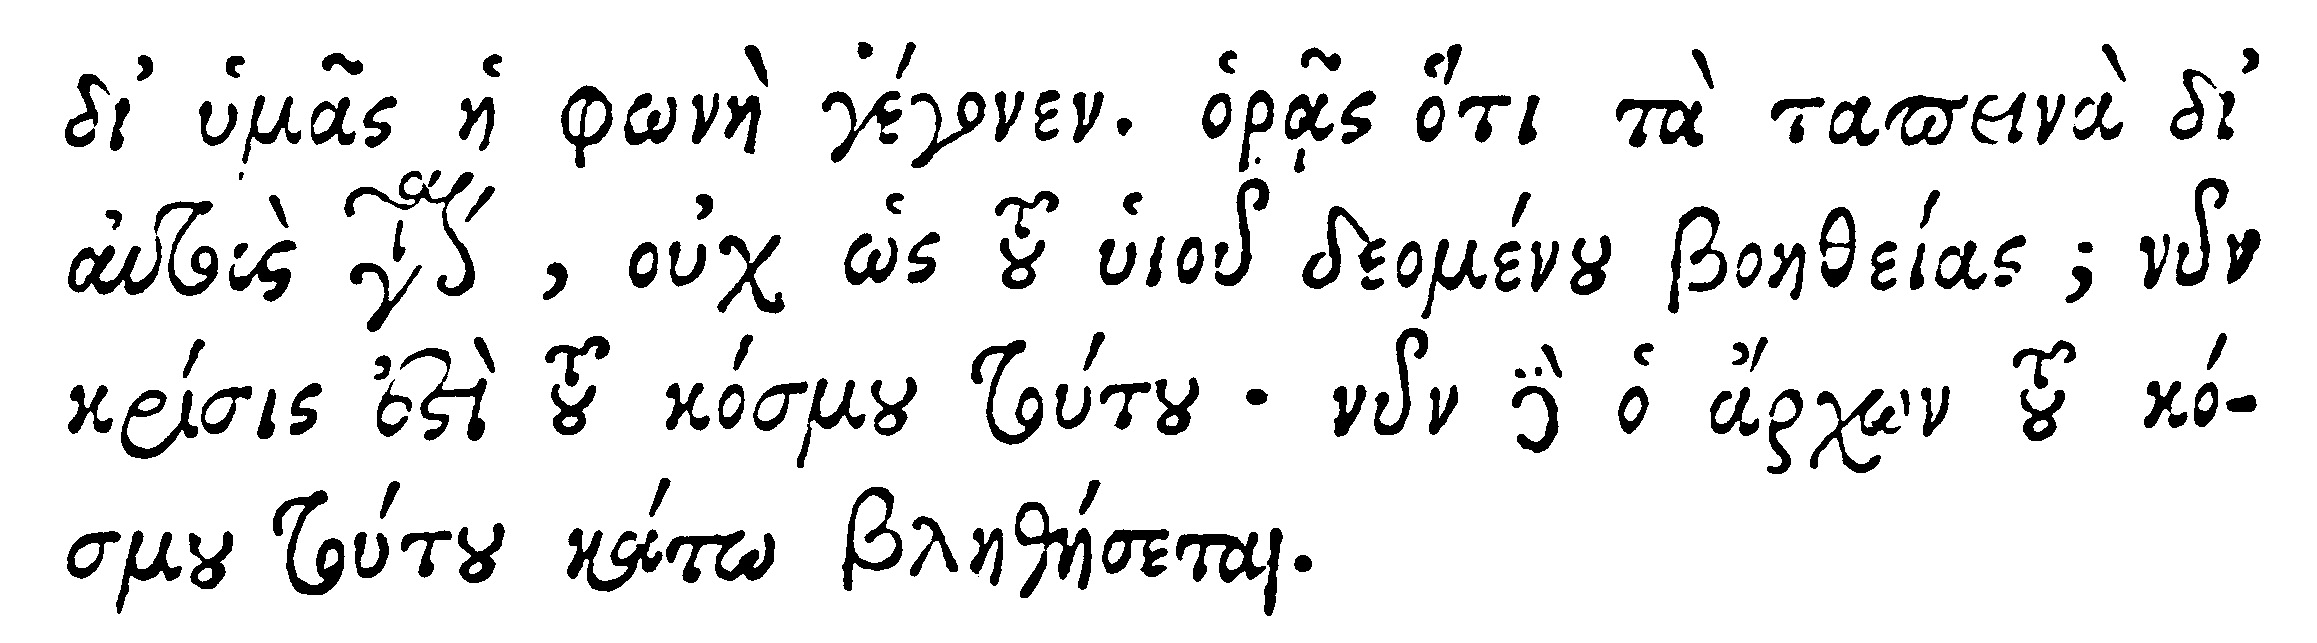 δι᾽ ὑμᾶς ἡ φωνὴ γέγονεν. ὁρᾷς ὅτι τὰ ταπεινὰ δι᾽
αὐτοὺς γίνεται, οὐχ ὡς τοῦ υἱοῦ δεομένου βοηθείας; νῦν
κρίσις ἐστὶ τοῦ κόσμου τούτου · νῦν καὶ ὁ ἄρχων τοῦ κό-
σμου τούτου κάτω βληθήσεται.